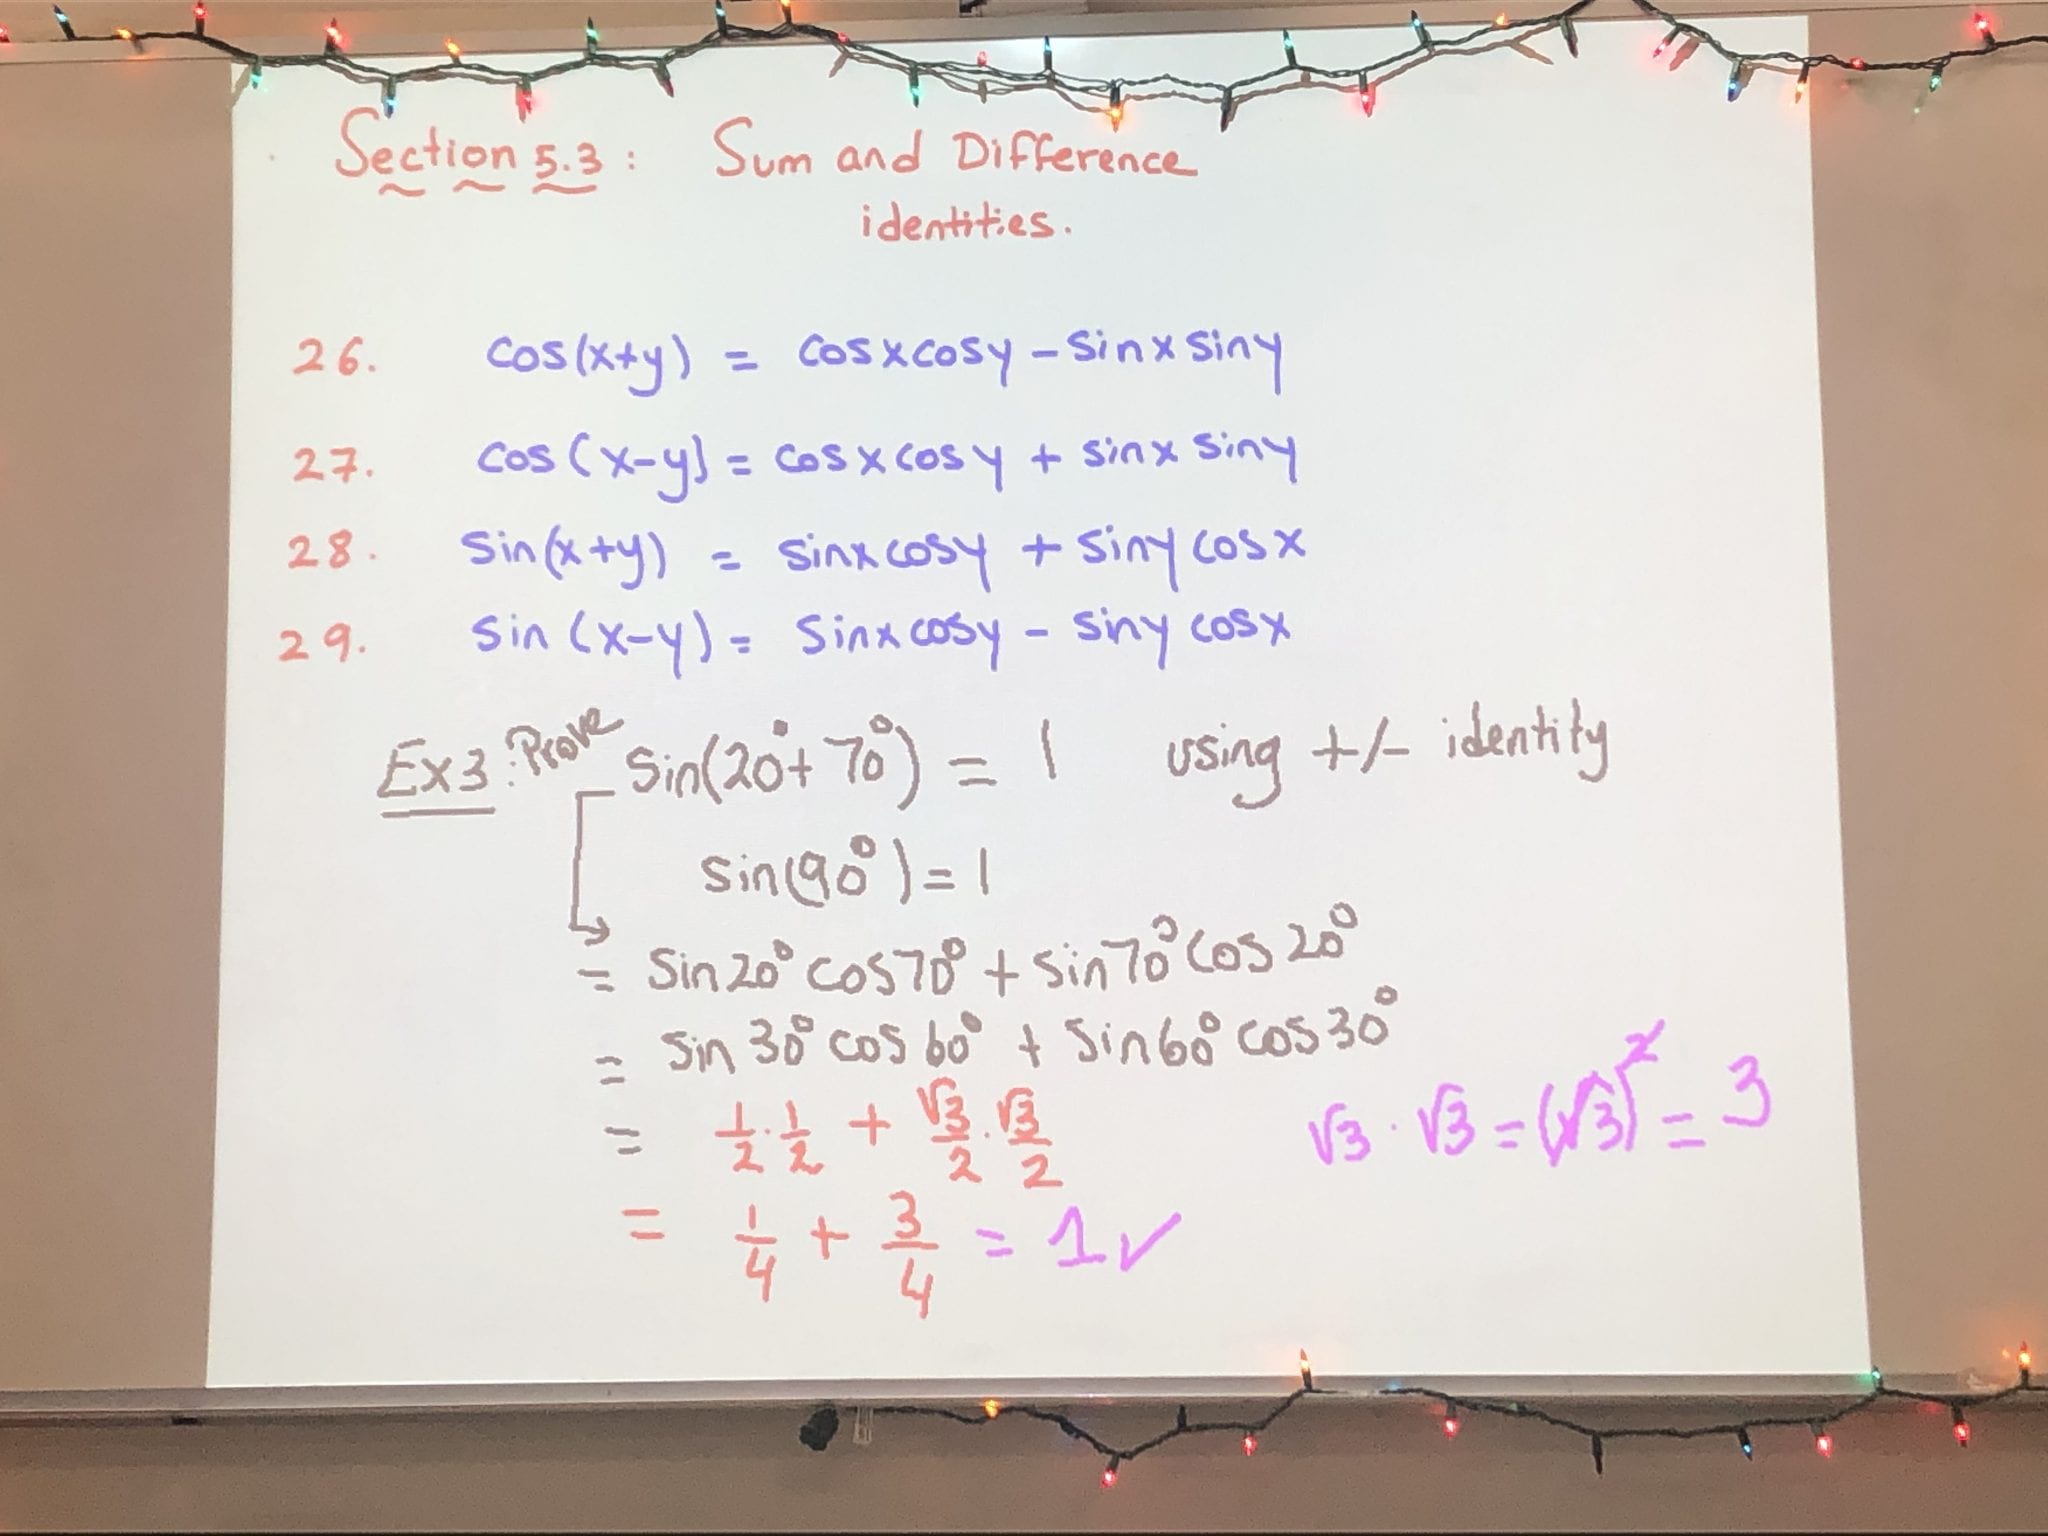 Section 5.3: Sum and Difference
identities.
26. cos(x+y) = cosxcosy - sinx siny
27. cos(x-y) = cosxcosy + sinx siny
28. sin(x+y) = sinxcosy + siny cosx
29. sin(x-y) = sinxcosy - siny cosx
Ex3: Prove sin(20°+70°) = 1 using +/- identity
sin(90°) = 1
= sin20° cos70° + sin70° cos20°
= sin 30° cos 60° + sin60° cos30°
= 1/2 · 1/2 + √3/2 · √3/2
√3 · √3 = (√3)² = 3
= 1/4 + 3/4 = 1 ✓